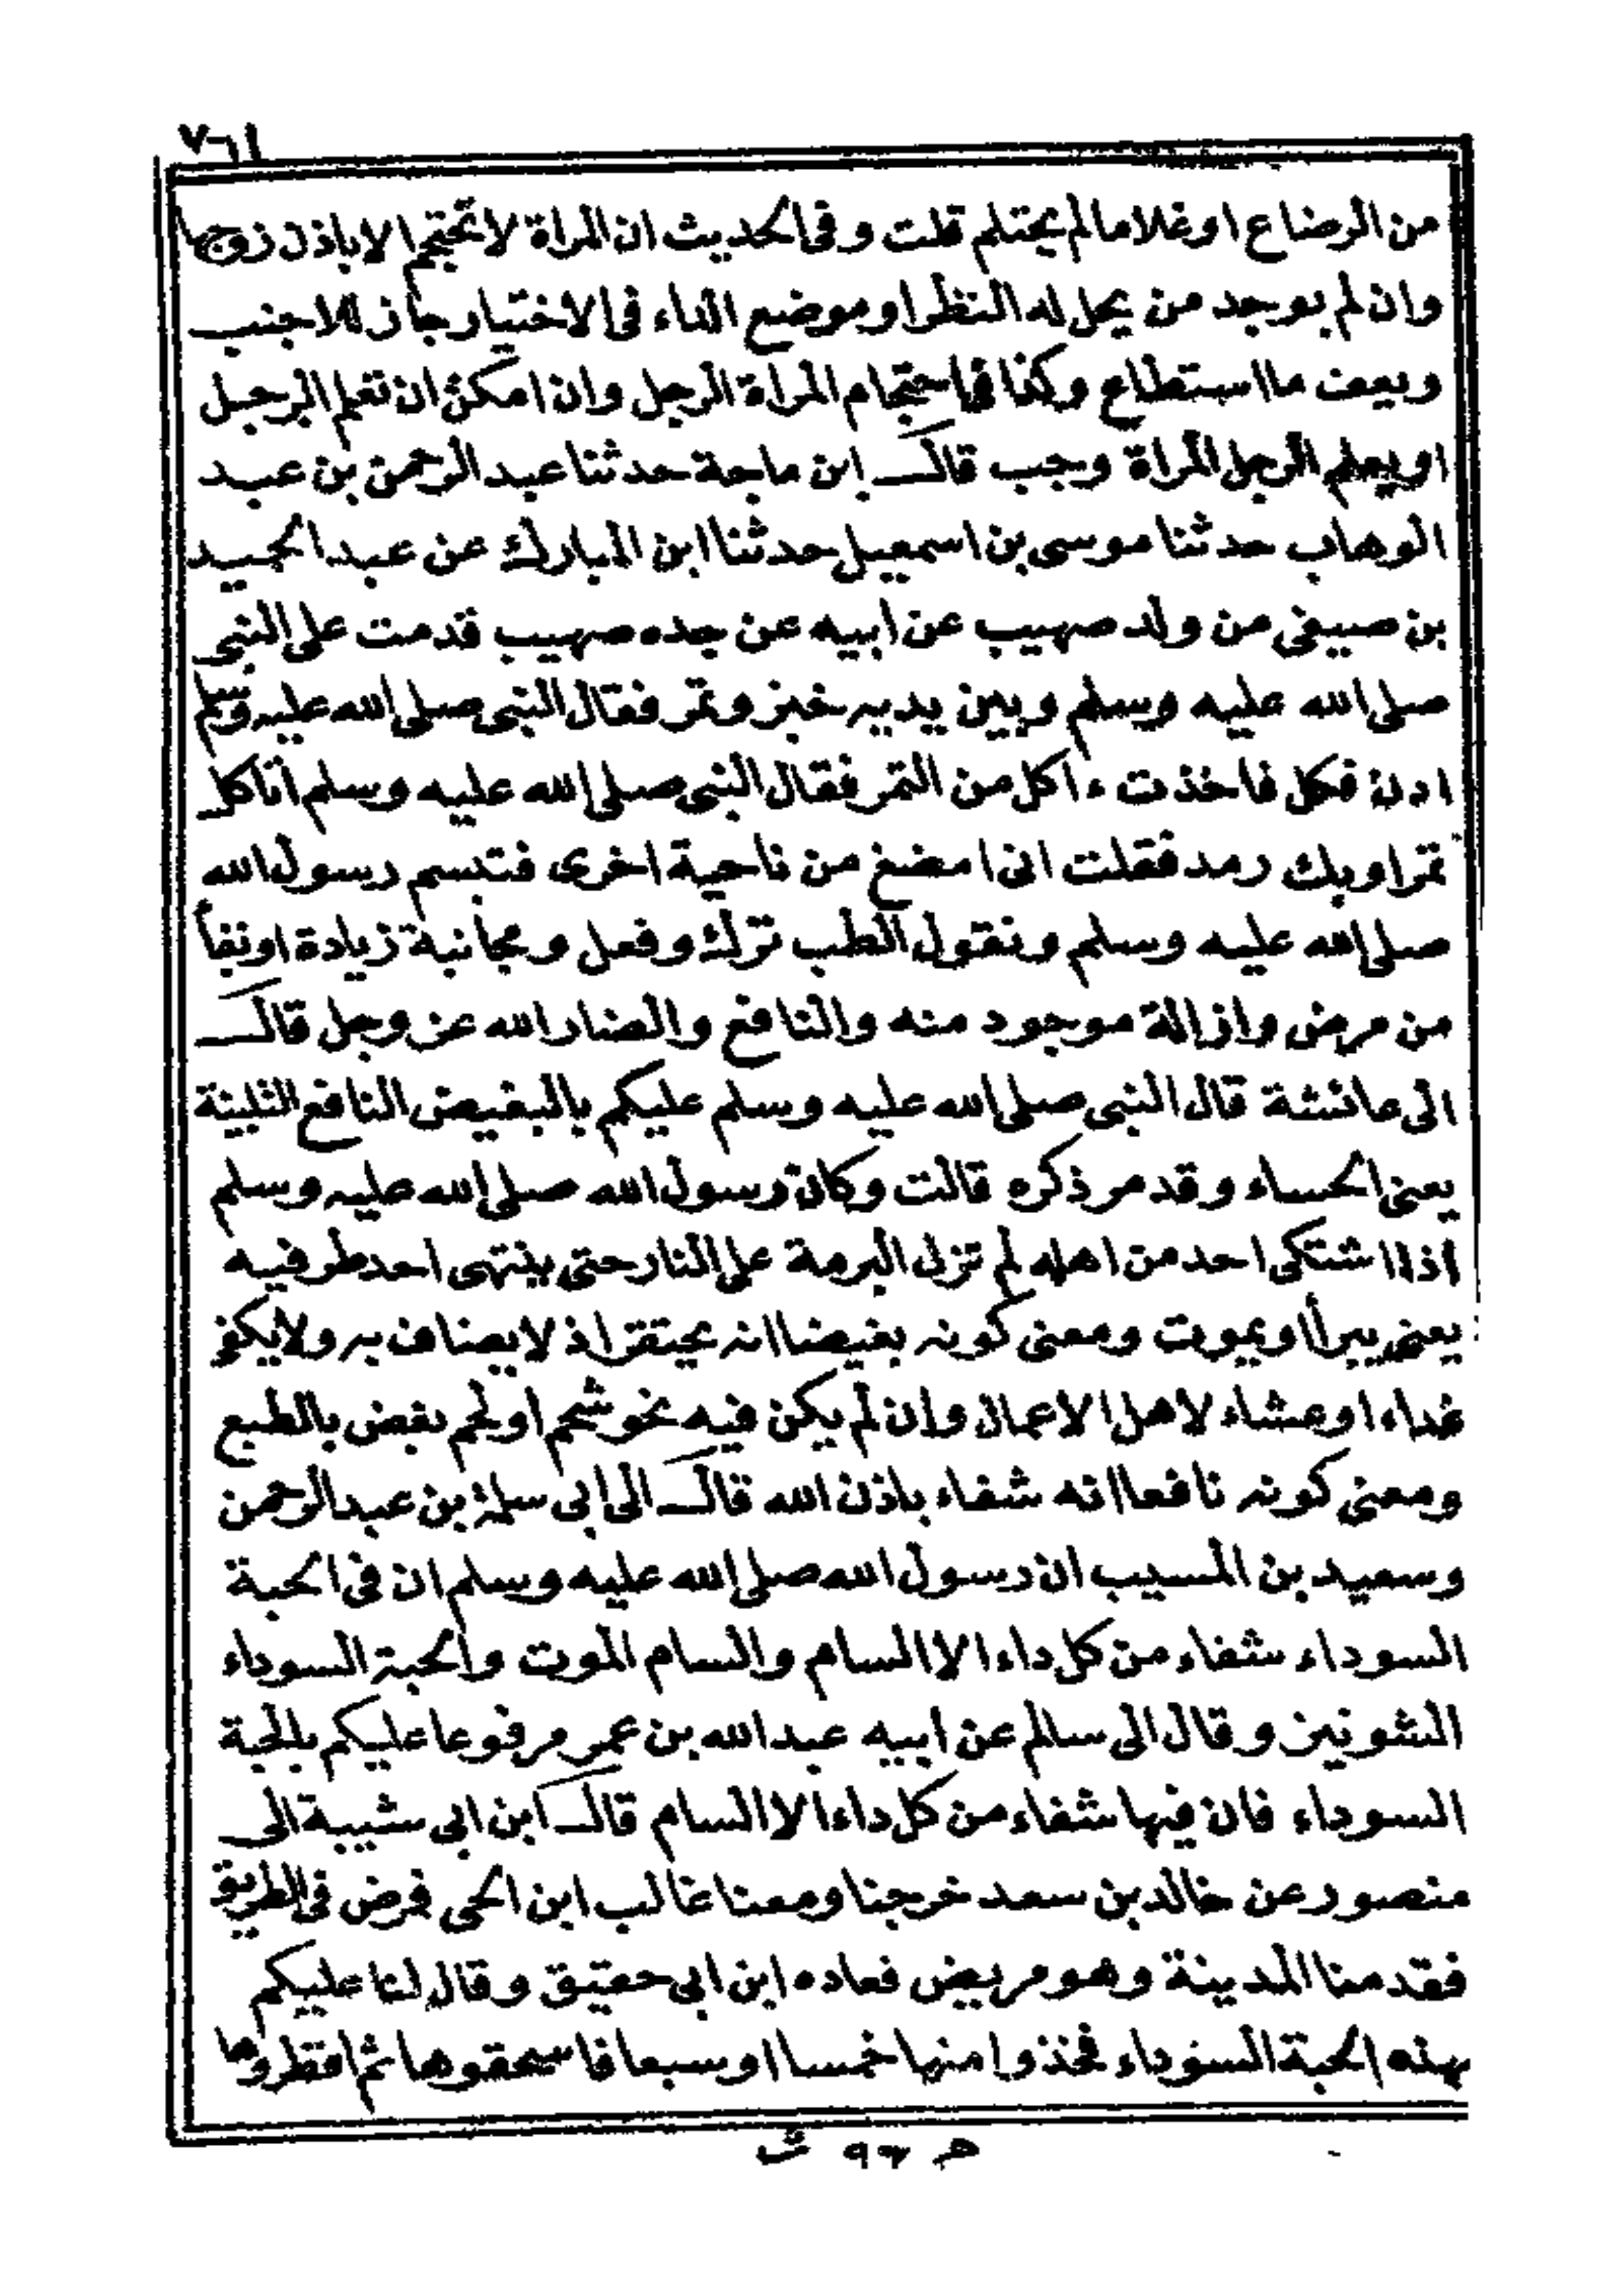 ٧٦١
من الرضاع او غلاما لم يحتلم قلت وفى الحديث ان المراة لا تحتجم الا باذن زوجها
وان لم يوجد من يحل له النظر او موضع الداء فى الاختيار جاز للاجنب
ويعف ما استطاع وكذا فى احتجام المراة الرجل وان امكن ان تعلم الرجل
او يعلم الرجل المراة وجب قال ابن ماجة حدثنا عبد الرحمن بن عبد
الوهاب حدثنا موسى بن اسمعيل حدثنا ابن المبارك عن عبد الحميد
بن صيفى من ولد صهيب عن ابيه عن جده صهيب قدمت على النبى
صلى الله عليه وسلم وبين يديه خبز وتمر فقال النبى صلى الله عليه وسلم
ادن فكل فاخذت ءاكل من التمر فقال النبى صلى الله عليه وسلم اتاكل
تمرا وبك رمد فقلت انى امضغ من ناحية اخرى فتبسم رسول الله
صلى الله عليه وسلم ونقول الطب ترك وفعل ومجانبة زيادة او نفا
من مرض وازالة موجود منه والنافع والضار الله عز وجل قال
الى عائشة قال النبى صلى الله عليه وسلم عليكم بالبغيض النافع التلبينة
يعنى الحساء وقد مر ذكره قالت وكان رسول الله صلى الله عليه وسلم
اذا اشتكى احد من اهله لم تزل البرمة على النار حتى ينتهى احد طرفيه
يعنى يبرأ او يموت ومعنى كونه بغيضا انه يحتقر اذ لا يضاف به ولا يكفى
غداء او عشاء لاهل الاعمال وان لم يكن فيه نحو شحم او لحم بغض بالطبع
ومعنى كونه نافعا انه شفاء باذن الله قال الى ابى سلمة بن عبد الرحمن
وسعيد بن المسيب ان رسول الله صلى الله عليه وسلم ان فى الحبة
السوداء شفاء من كل داء الا السام والسام الموت والحبة السوداء
الشونيز وقال الى سالم عن ابيه عبد الله بن عمر مرفوعا عليكم بالحبة
السوداء فان فيها شفاء من كل داء الا السام قال ابن ابى شيبة الى
منصور عن خالد بن سعد خرجنا ومعنا غالب ابن الحى فمرض فى الطريق
فقدمنا المدينة وهو مريض فعاده ابن ابى حقتيق وقال لنا عليكم
بهذه الحبة السوداء فخذوا منها خمسا او سبعا فاسحقوها ثم اقطروها